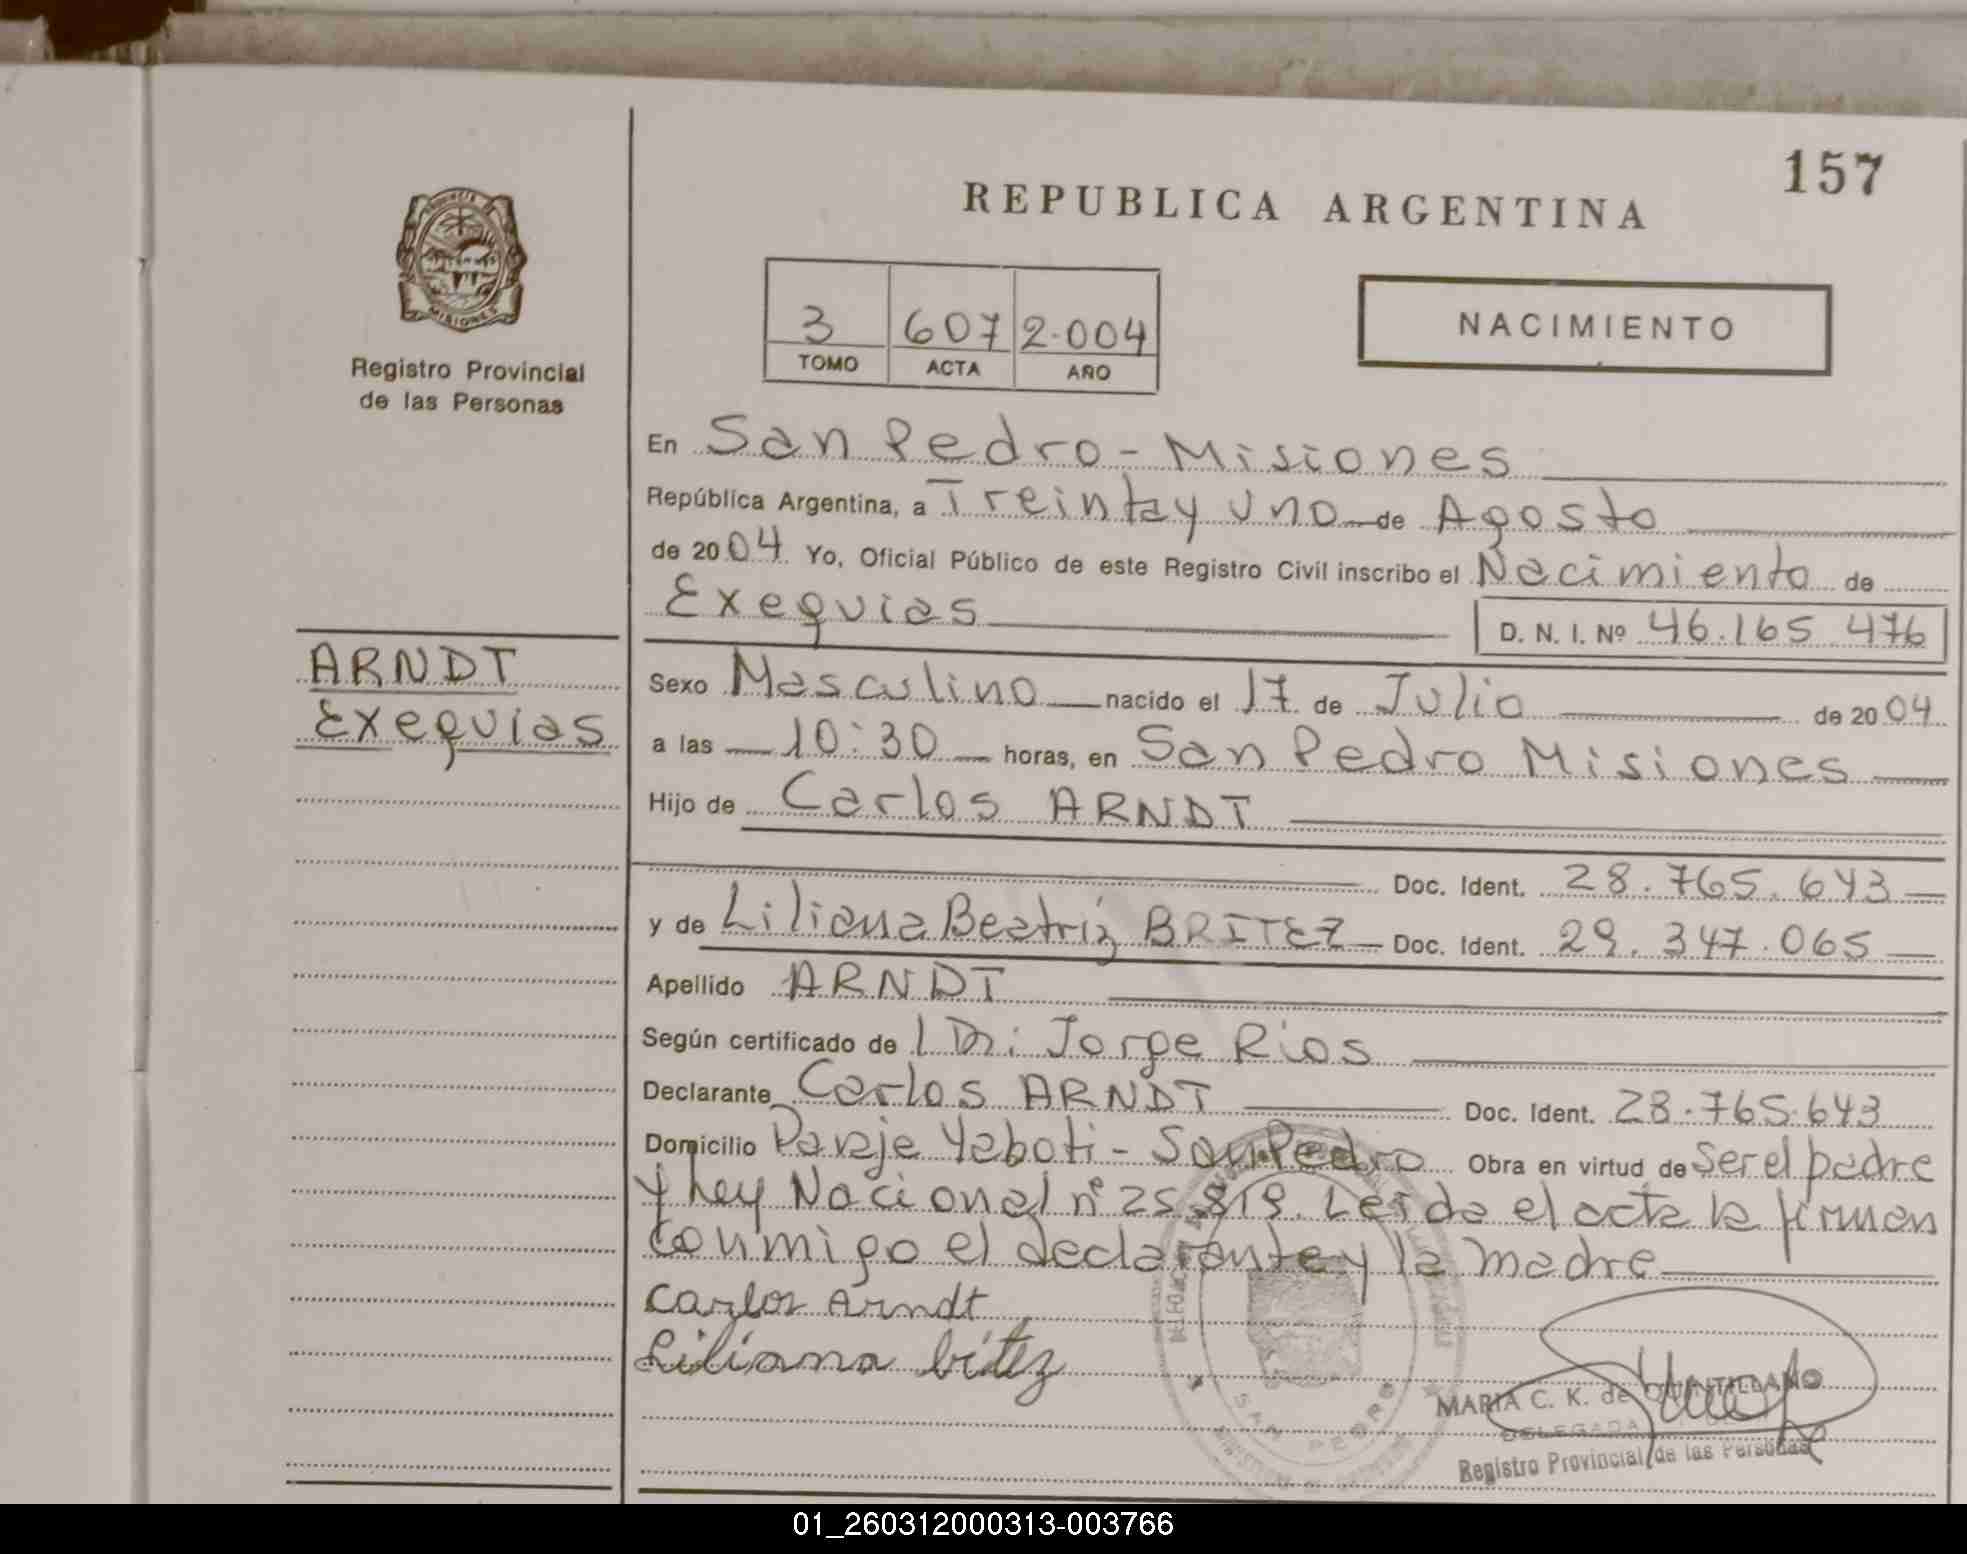 157
REPUBLICA ARGENTINA
PROVINCIA DE
MISIONES
Registro Provincial
de las Personas
3 607 2.004
TOMO ACTA AÑO
NACIMIENTO
En San Pedro - Misiones
República Argentina, a Treinta y uno de Agosto
de 2004 Yo, Oficial Público de este Registro Civil inscribo el Nacimiento de
Exequias D. N. I. Nº 46.165.476
ARNDT
Exequias
Sexo Masculino nacido el 17 de Julio de 2004
a las 10:30 horas, en San Pedro Misiones
Hijo de Carlos ARNDT
Doc. Ident. 28.765.643
y de Liliana Beatríz BRITEZ Doc. Ident. 29.347.065
Apellido ARNDT
Según certificado de l Dr: Jorge Rios
Declarante Carlos ARNDT Doc. Ident. 28.765.643
Domicilio Paraje Yaboti - San Pedro Obra en virtud de ser el padre
y Ley Nacional nº 25.819. Leída el acta la firman
conmigo el declarante y la madre
Carlos Arndt
Liliana bitez
SAN PEDRO
MARIA C. K. de QUINTILLANO
DELEGADA
Registro Provincial de las Personas
01_260312000313-003766